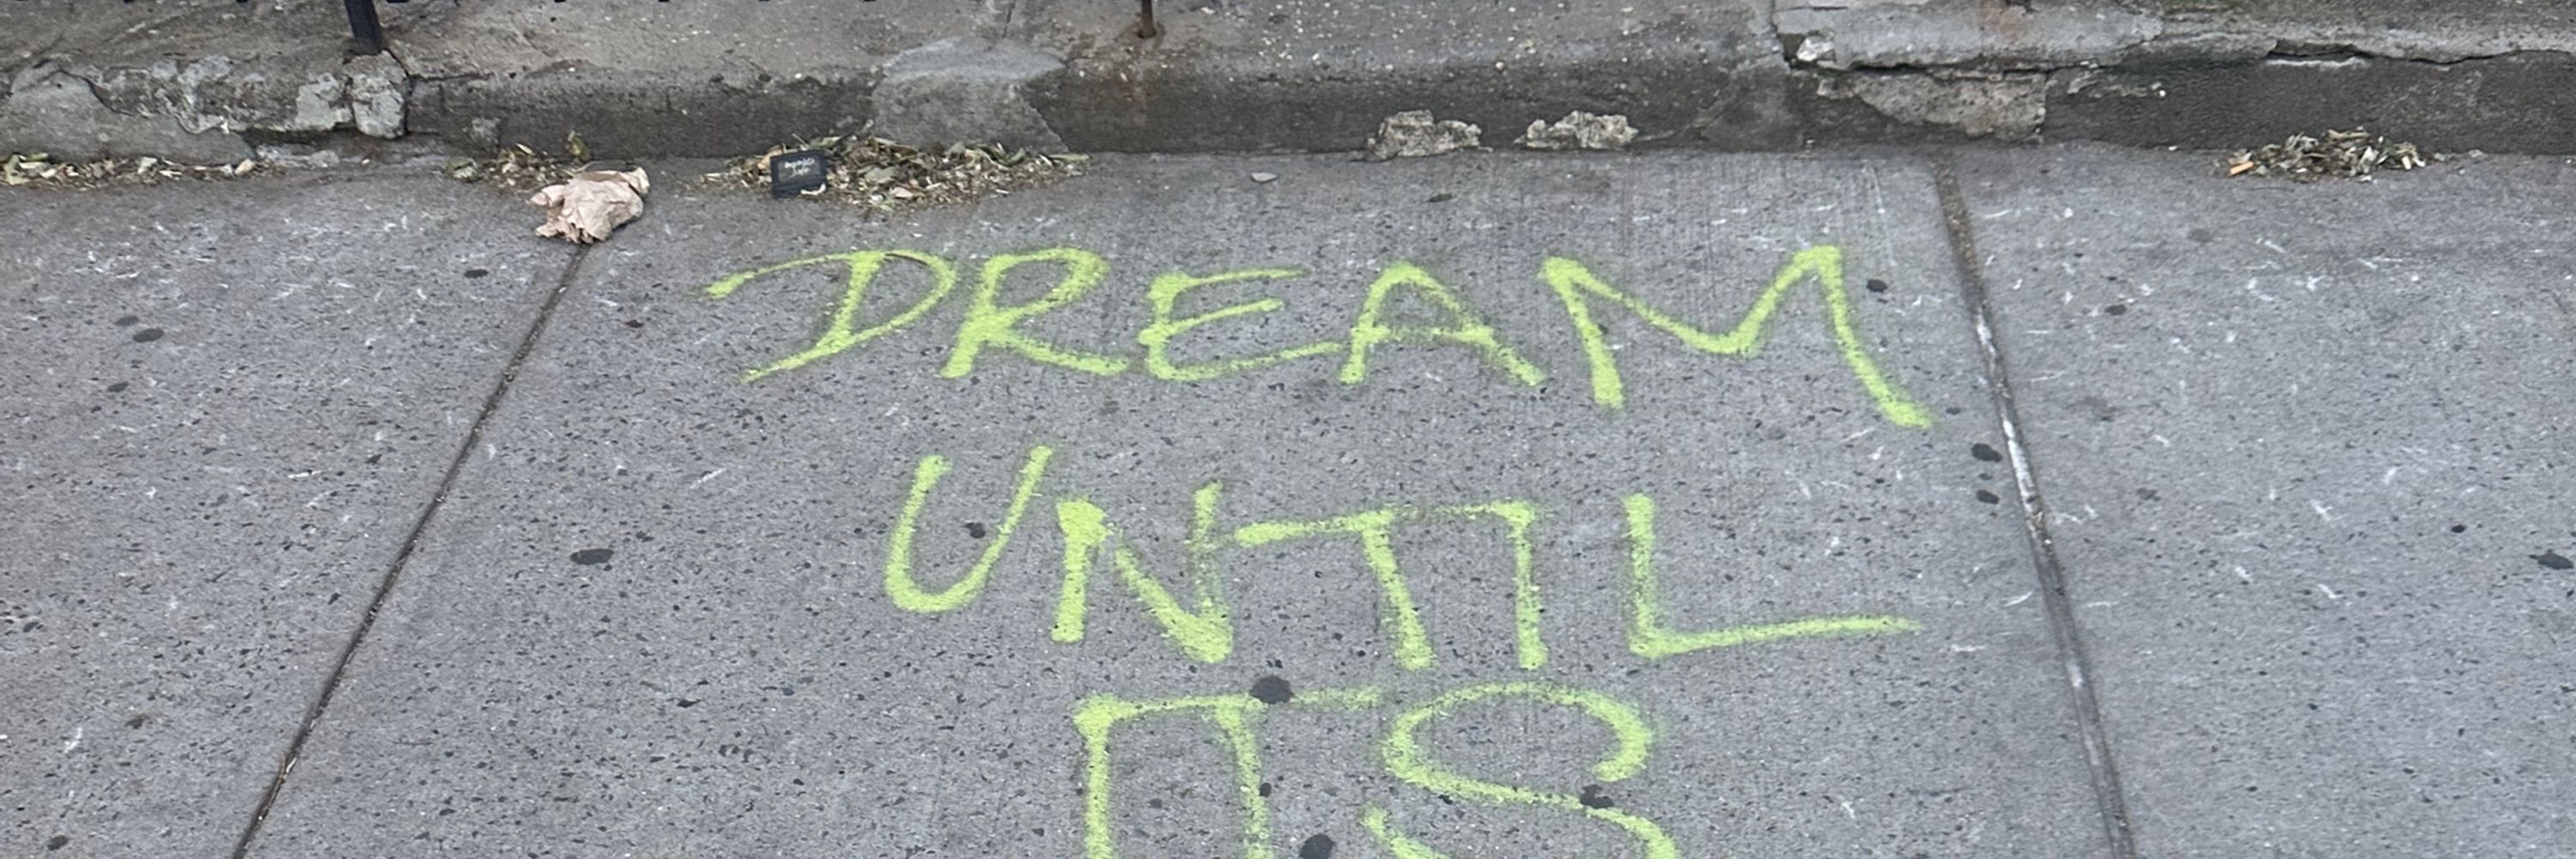 DREAM
UNTIL
ITS